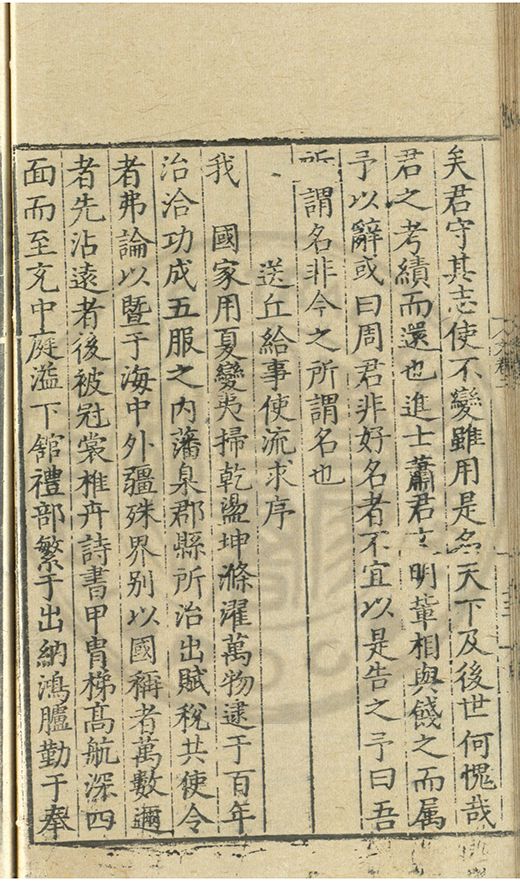 矣君守其志使不變雖用是名天下及後世何愧哉
君之考績而還也進士蕭君文明軰相與餞之而属
予以辭或曰周君非好名者不宜以是告之予曰吾
所謂名非今之所謂名也
送丘給事使流求序
我 國家用夏變夷掃乾盪坤滌濯萬物逮于百年
治洽功成五服之內藩臬郡縣所治出賦稅共使令
者弗論以暨于海中外疆殊界别以國稱者萬數邇
者先沾遠者後被冠裳椎卉詩書甲冑梯髙航深四
面而至充中庭溢下舘禮部繁于出納鴻臚勤于奉